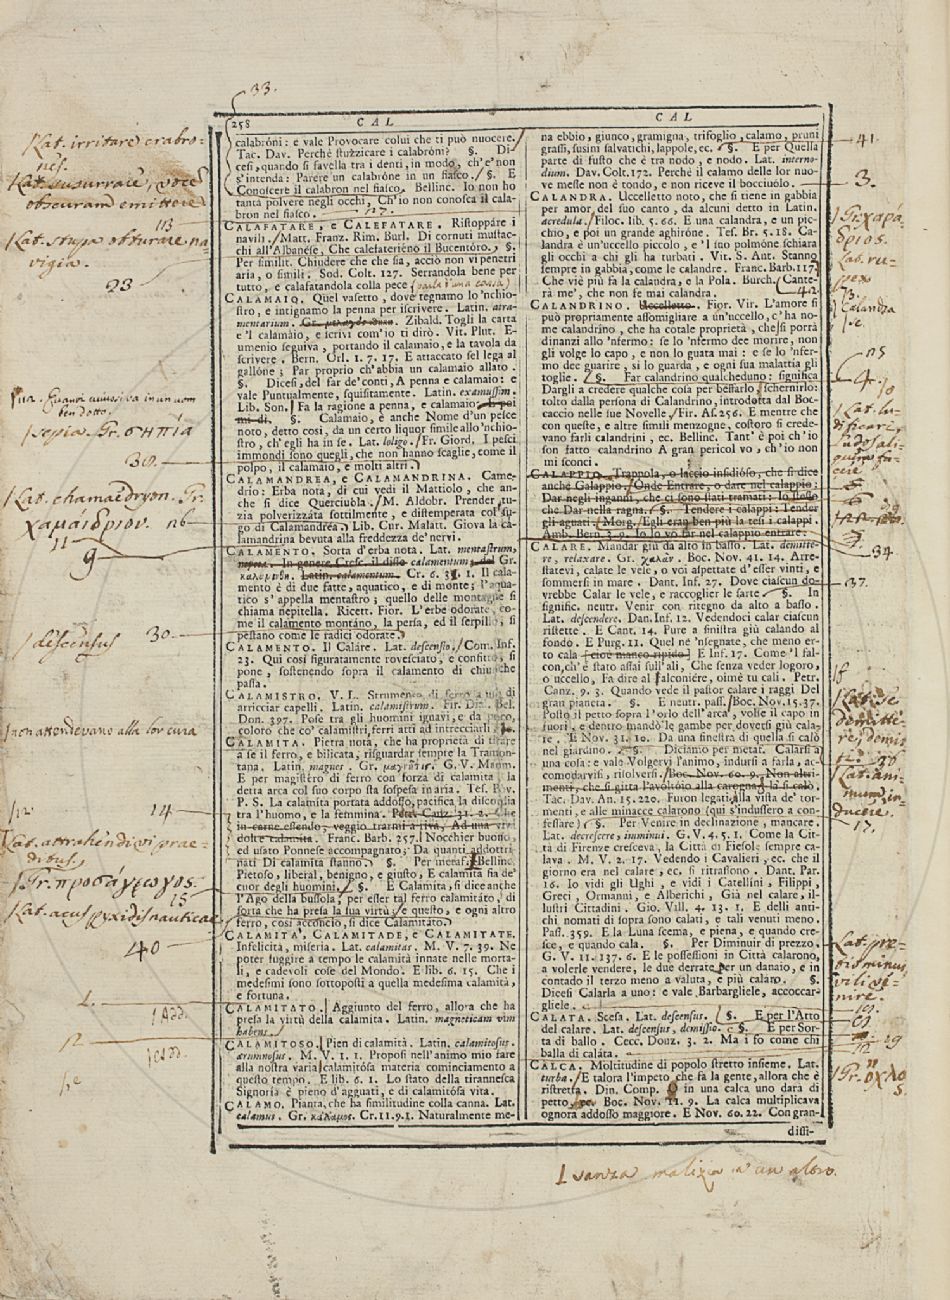 33.
258 CAL CAL
calabróni: e vale Provocare colui che ti può nuocere.
Tac. Dav. Perchè stuzzicare i calabróni? §. Di-
cesi, quando si favella tra i denti, in modo, ch'e' non
s'intenda: Parere un calabróne in un fiasco. §. E
Conoscere il calabron nel fiasco. Bellinc. Io non ho
tanta polvere negli occhi, Ch'io non conosca il cala-
bron nel fiasco.
CALAFATARE, e CALEFATARE. Ristoppáre i
navili. Matt. Franz. Rim. Burl. Di cornuti mustac-
chi all'Albanése. Che calefaterièno il Bucentóro. §.
Per similit. Chiudere che che sia, acciò non vi penetri
aria, o simili. Sod. Colt. 127. Serrandola bene per
tutto, e calafatandola colla pece
CALAMAIO. Quel vasetto, dove tegnamo lo 'nchio-
stro, e intignamo la penna per iscrivere. Latin. atra-
mentarium. Zibald. Togli la carta
e 'l calamáio, e scrivi com'io ti dirò. Vit. Plut. E-
umenio seguiva, portando il calamaio, e la tavola da
scrivere. Bern. Orl. 1. 7. 17. E attaccato sel lega al
gallóne; Par proprio ch'abbia un calamaio allato.
§. Dicesi, del far de' conti, A penna e calamaio: e
vale Puntualmente, squisitamente. Latin. examussim.
Lib. Son. Fa la ragione a penna, e calamaio: E poi
mi di. §. Calamaio, è anche Nome d'un pesce
noto, detto cosi, da un certo liquor simile allo 'nchio-
stro, ch'egli ha in se. Lat. loligo. Fr. Giord. I pesci
immondi sono quegli, che non hanno scaglie, come il
polpo, il calamaio, e molti altri.
CALAMANDREA, e CALAMANDRINA. Came-
drio: Erba nota, di cui vedi il Mattiolo, che an-
che si dice Querciuóla. M. Aldobr. Prender tu-
zia polverizzata sottilmente, e distemperata col su-
go di Calamandrèa. Lib. Cur. Malatt. Giova la ca-
lamandrina bevuta alla freddezza de' nervi.
CALAMENTO. Sorta d'erba nota. Lat. mentastrum,
nepeta. In genere Cresc. il disse calamentum; dal Gr.
Latin. calamentum. Cr. 6. 31. 1. Il cala-
mento è di due fatte, aquatico, e di monte; l'aqua-
tico s'appella mentastro; quello delle montagne si
chiama nepitella. Ricett. Fior. L'erbe odorate, co-
me il calamento montáno, la persa, ed il serpillo, si
pestano come le radici odorate.
CALAMENTO. Il Calare. Lat. descensio. Com. Inf.
23. Qui cosi figuratamente rovesciato, e confitto, si
pone, sostenendo sopra il calamento di chiunche
passa.
CALAMISTRO. V. L. Strumento di ferro a uso di
arricciar capelli. Latin. calamistrum. Fir. Dia. Bel.
Don. 397. Pose tra gli huomini ignavi, e da poco,
coloro che co' calamistri, ferri atti ad intrecciarli
CALAMITA. Pietra nota, che ha proprietà di tirare
a se il ferro, e bilicata, risguardar sempre la Tramon-
tana. Latin. magnes. Gr. μαγνῆτις. G. V. Maum.
E per magistèro di ferro con forza di calamita la
detta arca col suo corpo sta sospesa in aria. Tes. Pov.
P. S. La calamita portata addosso, pacifica la discoglia
tra l'huomo, e la femmina. Petr. Canz. 31. 2. Che
in carne essendo, veggio trarmi a riva, Ad una viva
dolce calamita. Franc. Barb. 257. Nocchier buono,
ed usato Ponesse accompagnato; Da quanti addottri-
nati Di calamita stanno. §. Per metaf. Bellinc.
Pietoso, liberal, benigno, e giusto, E calamita sia de'
cuor degli huomini. §. E Calamita, si dice anche
l'Ago della bussola, per esser tal ferro calamitáto, di
sorta che ha presa la sua virtù e questo, e ogni altro
ferro, così acconcio, si dice Calamitáto.
CALAMITÀ, CALAMITADE, e CALAMITATE.
Infelicità, miseria. Lat. calamitas. M. V. 7. 39. Ne
poter fuggire a tempo le calamità innate nelle morta-
li, e cadevoli cose del Mondo. E lib. 6. 15. Che i
medesimi sono sottoposti a quella medesima calamità,
e fortuna.
CALAMITATO. Aggiunto del ferro, allora che ha
presa la virtù della calamita. Latin. magneticam vim
habens.
CALAMITOSO. Pien di calamità. Latin. calamitosus.
ærumnosus. M. V. 1. 1. Proposi nell'animo mio fare
alla nostra varia calamitósa materia cominciamento a
questo tempo. E lib. 6. 1. Lo stato della tirannesca
Signoria è pieno d'agguati, e di calamitósa vita.
CALAMO. Pianta, che ha similitudine colla canna. Lat.
calamus. Gr. καλαμος. Cr. 11. 9. 1. Naturalmente me-
na ebbio, giunco, gramigna, trifoglio, calamo, pruni
grassi, susini salvatichi, lappole, ec. §. E per Quella
parte di fusto che è tra nodo, e nodo. Lat. interno-
dium. Dav. Colt. 172. Perchè il calamo delle lor nuo-
ve messe non è tondo, e non riceve il bocciuólo.
CALANDRA. Uccelletto noto, che si tiene in gabbia
per amor del suo canto, da alcuni detto in Latin.
acredula. Filoc. lib. 5. 66. E una calandra, e un pic-
chio, e poi un grande aghiróne. Tes. Br. 5. 18. Ca-
landra è un'uccello piccolo, e 'l suo polmóne schiara
gli occhi a chi gli ha turbati. Vit. S. Ant. Stanno
sempre in gabbia, come le calandre. Franc. Barb. 117.
Che viè più fa la calandra, e la Pola. Burch. Cante-
rà me', che non fe mai calandra.
CALANDRINO. Uccellino. Fior. Vir. L'amore si
può propriamente assomigliare a un'uccello, c'ha no-
me calandrino, che ha cotale proprietà, che si porrà
dinanzi allo 'nfermo: se lo 'nfermo dee morire, non
gli volge lo capo, e non lo guata mai: e se lo 'nfer-
mo dee guarire, si lo guarda, e ogni sua malattia gli
toglie. §. Far calandrino qualcheduno: significa
Dargli a credere qualche cosa per beffarlo, schernirlo:
tolto dalla persona di Calandrino, introdotta dal Boc-
caccio nelle sue Novelle. Fir. As. 256. E mentre che
con queste, e altre simili menzogne, costoro si crede-
vano farli calandrini, ec. Bellinc. Tant' è poi ch'io
son fatto calandrino A gran pericol vo, ch'io non
mi sconci.
CALAPPIO. Trappola, o laccio insidióso, che si dice
anche Galappio. Onde Entrare, o dare nel calappio:
Dar negli inganni, che ci sono stati tramati: Lo stesso
che Dar nella ragna. §. Tendere i calappi: Tender
gli aguati. Morg. Egli eran ben più la tesi i calappi.
Amb. Bern. 3. 9. Io lo vo far nel calappio entrare.
CALARE. Mandar giù da alto in basso. Lat. demitte-
re, relaxare. Gr. χαλᾶν. Boc. Nov. 41. 14. Arre-
statevi, calate le vele, o voi aspettate d'esser vinti, e
sommersi in mare. Dant. Inf. 27. Dove ciascun do-
vrebbe Calar le vele, e raccoglier le sarte. §. In
signific. neutr. Venir con ritegno da alto a basso.
Lat. descendere. Dan. Inf. 12. Vedendoci calar ciascun
ristette. E Cant. 14. Pure a sinistra giù calando al
fondo. E Purg. 11. Quel ne 'nsegnate, che meno er-
to cala cioè manco ripido E Inf. 17. Come 'l fal-
con, ch'è stato assai sull'ali, Che senza veder logoro,
o uccello, Fa dire al falconiére, oimè tu cali. Petr.
Canz. 9. 3. Quando vede il pastor calare i raggi Del
gran pianeta. §. E neutr. pass. Boc. Nov. 15. 37.
Posto il petto sopra l'orlo dell'arca, volse il capo in
fuori, e dentro mandò le gambe per dovesi giù cala-
re. E Nov. 31. 10. Da una finestra di quella si calò
nel giardino. §. Diciamo per metaf. Calarsi a
una cosa: e vale Volgervi l'animo, indursi a farla, ac-
comodarvisi, risolversi. Boc. Nov. 60. 9. Non altri-
menti, che si gitta l'avóltóio alla carogna, là si calò.
Tac. Dav. An. 15. 220. Furon legati alla vista de' tor-
menti, e alle minacce calarono (qui s'indussero a con-
fessare) §. Per Venire in declinazione, mancare.
Lat. decrescere, imminui. G. V. 4. 5. 1. Come la Cit-
tà di Firenze cresceva, la Città di Fiesole sempre ca-
lava. M. V. 2. 17. Vedendo i Cavalieri, ec. che il
giorno era nel calare, ec. si ritrassono. Dant. Par.
16. Io vidi gli Ughi, e vidi i Catellini, Filippi,
Greci, Ormanni, e Alberichi, Già nel calare, il-
lustri Cittadini. Gio. Vill. 4. 13. 1. E delli anti-
chi nomati di sopra sono calati, e tali venuti meno.
Pass. 359. E la Luna scema, e piena, e quando cre-
sce, e quando cala. §. Per Diminuir di prezzo.
G. V. 11. 137. 6. E le possessioni in Città calarono,
a volerle vendere, le due derrate per un danaio, e in
contado il terzo meno a valuta, e più caláro. §.
Dicesi Calarla a uno: e vale Barbargliele, accoccar-
gliele.
CALATA. Scesa. Lat. descensus. §. E per l'Atto
del calare. Lat. descensus, demissio. §. E per Sor-
ta di ballo. Cecc. Donz. 3. 2. Ma i so come chi
balla di caláta.
CALCA. Moltitudine di popolo stretto insieme. Lat.
turba. E talora l'impeto che fa la gente, allora che è
ristretta. Din. Comp. in una calca uno darà di
petto Boc. Nov. 11. 9. La calca multiplicava
ognora addosso maggiore. E Nov. 60. 22. Con gran-
dissi-
Lat. irritare crabro-
nes.
Lat. susurrare, voce
obscuram emittere
113
Lat. stupa obturare na-
vigia.
23
sepia. Gr. σηπία
30.
Lat. chamaedryon. Gr.
χαμαίδριον. nb
11
9
descensus 30.
non attendevano alla lor cura
12 14
Lat. attrahendi vi prae-
ditus
Gr. προσάγωγος.
15
Lat. acus pyxidis nauticae
40
41.
3.
Gr. χαρά-
δριος.
42
Calandra
34
37.
Lat. se
demitte-
re, demis
Lat. ani-
mum in-
ducere.
17.
Lat. pre-
tio minus
vili ve-
nire.
29
Gr. ὄχλο
ς
senza malizia a un altro.